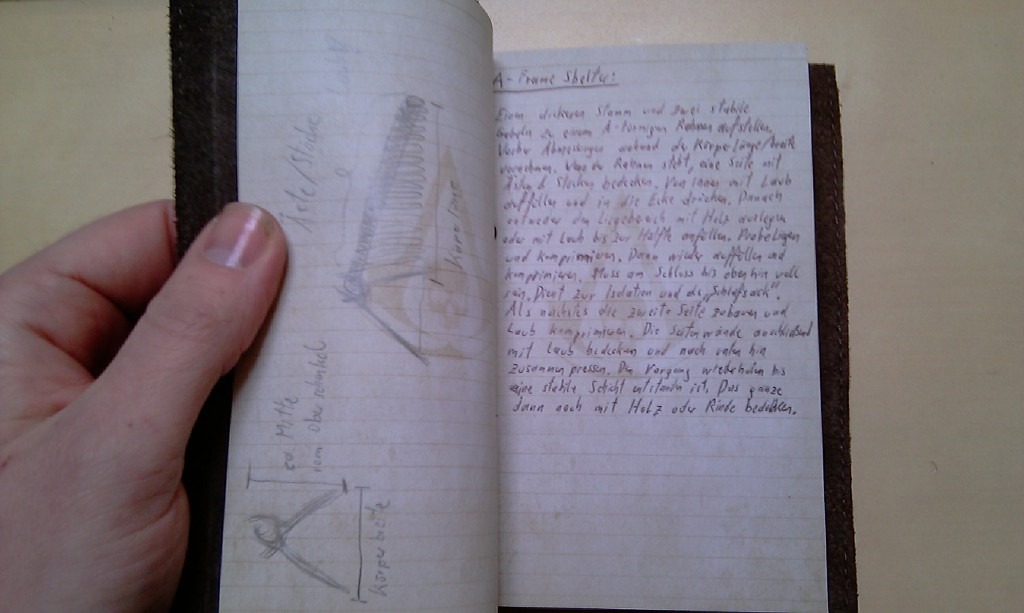 Äste/Stäbe
Laub
Körperlänge
ca. Mitte
vom Oberschenkel
Körperbreite
A-Frame Shelter:
Einen dickeren Stamm und zwei stabile
Gabeln zu einem A-förmigen Rahmen aufstellen.
Vorher Abmessungen anhand der Körperlänge/breite
vornehmen. Wenn der Rahmen steht, eine Seite mit
Ästen & Stöcken bedecken. Von Innen mit Laub
auffüllen und in die Ecke drücken. Danach
entweder den Liegebereich mit Holz auslegen
oder mit Laub bis zur Hälfte anfüllen. Probeliegen
und komprimieren. Dann wieder auffüllen und
komprimieren. Muss am Schluss bis obenhin voll
sein. Dient zur Isolation und als „Schlafsack".
Als nächstes die zweite Seite zubauen und
Laub komprimieren. Die Seitenwände anschließend
mit Laub bedecken und nach unten hin
zusammenpressen. Den Vorgang wiederholen bis
eine stabile Schicht entstanden ist. Das ganze
dann noch mit Holz oder Rinde bedecken.